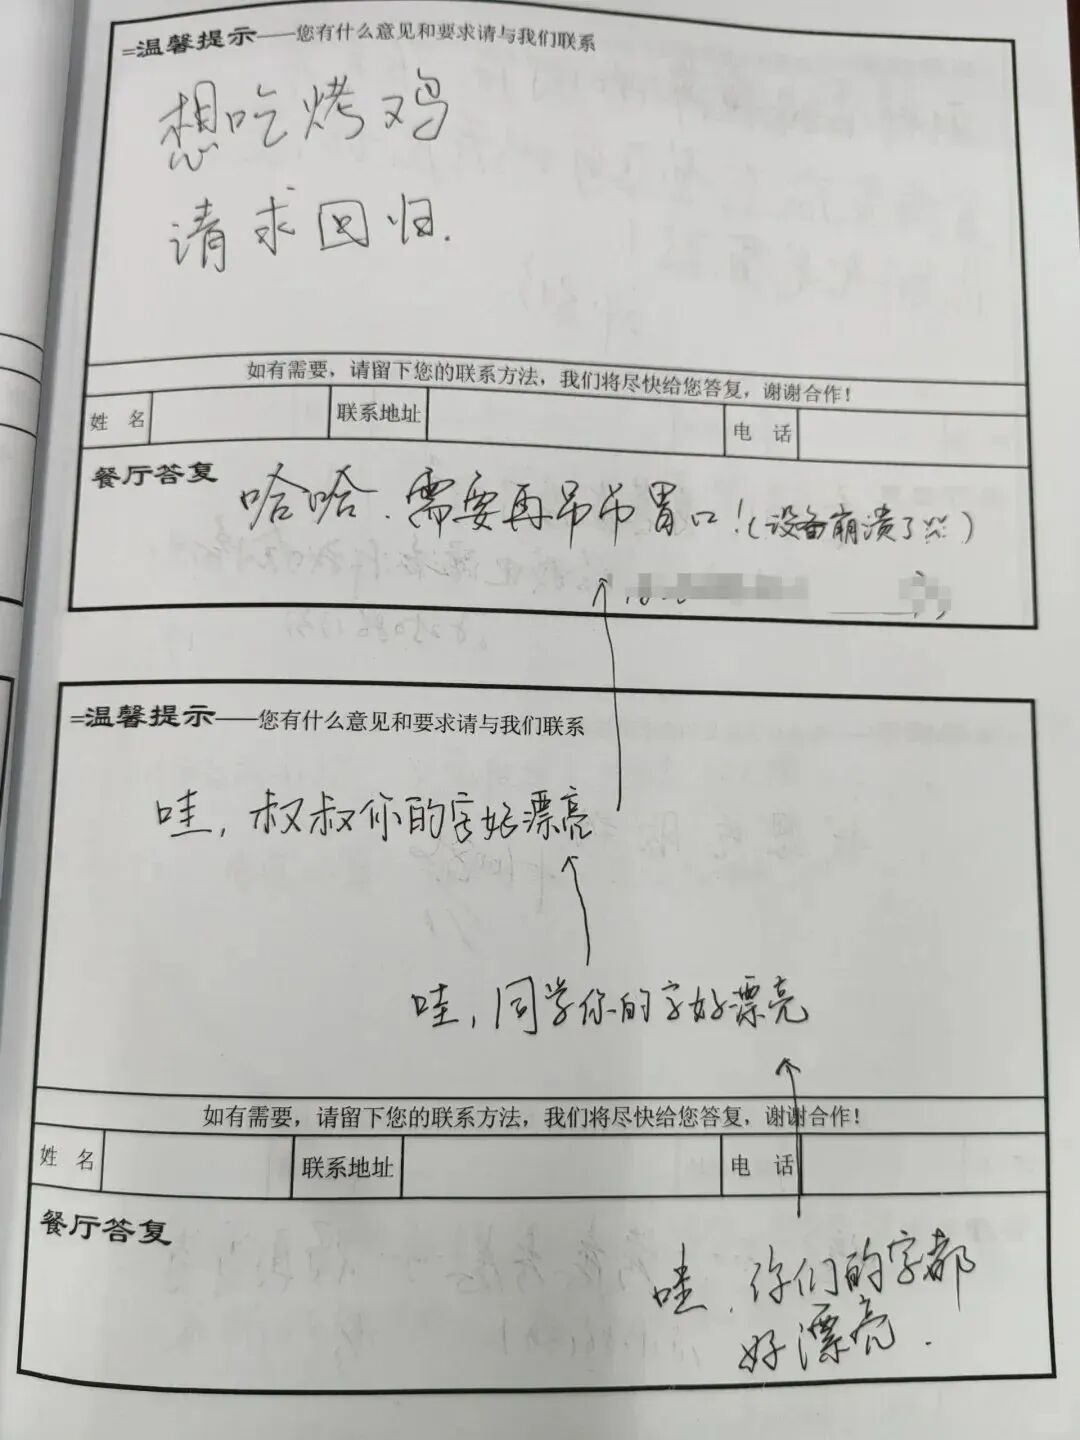 =温馨提示——您有什么意见和要求请与我们联系
想吃烤鸡
请求回归.
如有需要，请留下您的联系方法，我们将尽快给您答复，谢谢合作！
姓 名 联系地址 电 话
餐厅答复
哈哈.需要再吊吊胃口！(设备崩溃了)
=温馨提示——您有什么意见和要求请与我们联系
哇，叔叔你的字好漂亮
哇，同学你的字好漂亮
如有需要，请留下您的联系方法，我们将尽快给您答复，谢谢合作！
姓 名 联系地址 电 话
餐厅答复
哇.你们的字都
好漂亮.